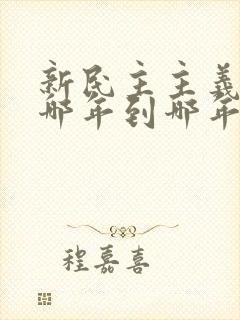 新民主主義
哪年到哪年
程嘉喜